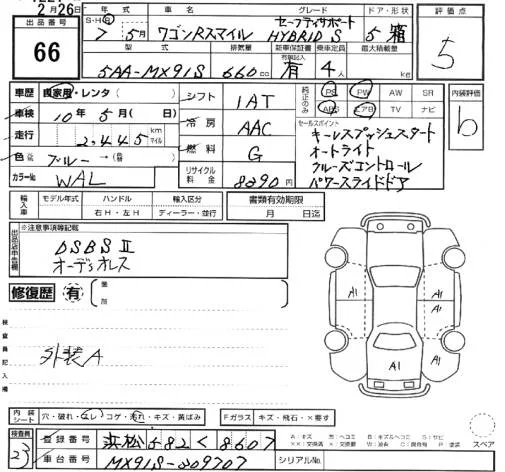 2月26日
出品番号
66
年式 車名 グレード ドア・形状
S・H・R 7年 5月 ワゴンRスマイル セーフティサポート HYBRID S 5 箱
型式 排気量 新車保証書 乗車定員 最大積載量
有効記入
5AA-MX91S 660cc 有 4人 kg
評価点
5
車歴 自家用・レンタ(
シフト 1AT
純正のみ PS PW AW SR
ABS エアB TV ナビ
内装評価
b
車検 10年 5月( 日)
冷房 AAC
走行 2,445 km マイル
燃料 G
色 ブルー→(
リサイクル料金 8290円
カラーNo. WAL
セールスポイント
キーレスプッシュスタート
オートライト
クルーズコントロール
パワースライドドア
輸入車 モデル年式 ハンドル 輸入区分 書類有効期限
右H・左H ディーラー・並行 月 日迄
※注意事項等記載
DSBSⅡ
オーディオレス
修復歴 有 箇所
検査員記入欄
外装A
A1 A1 A1 A1
内装シート 穴・破れ・スレ・コゲ・汚れ・キズ・黄ばみ
Fガラス キズ・飛石・×要す
検査員
23
登録番号 浜松 582 く 8607
車台番号 MX91S-209707
シリアルNo.
A:キズ U:ヘコミ B:キズ&ヘコミ S:サビ
××:交換済 X:要交換 W:波 C:腐食 P:塗装
スペア